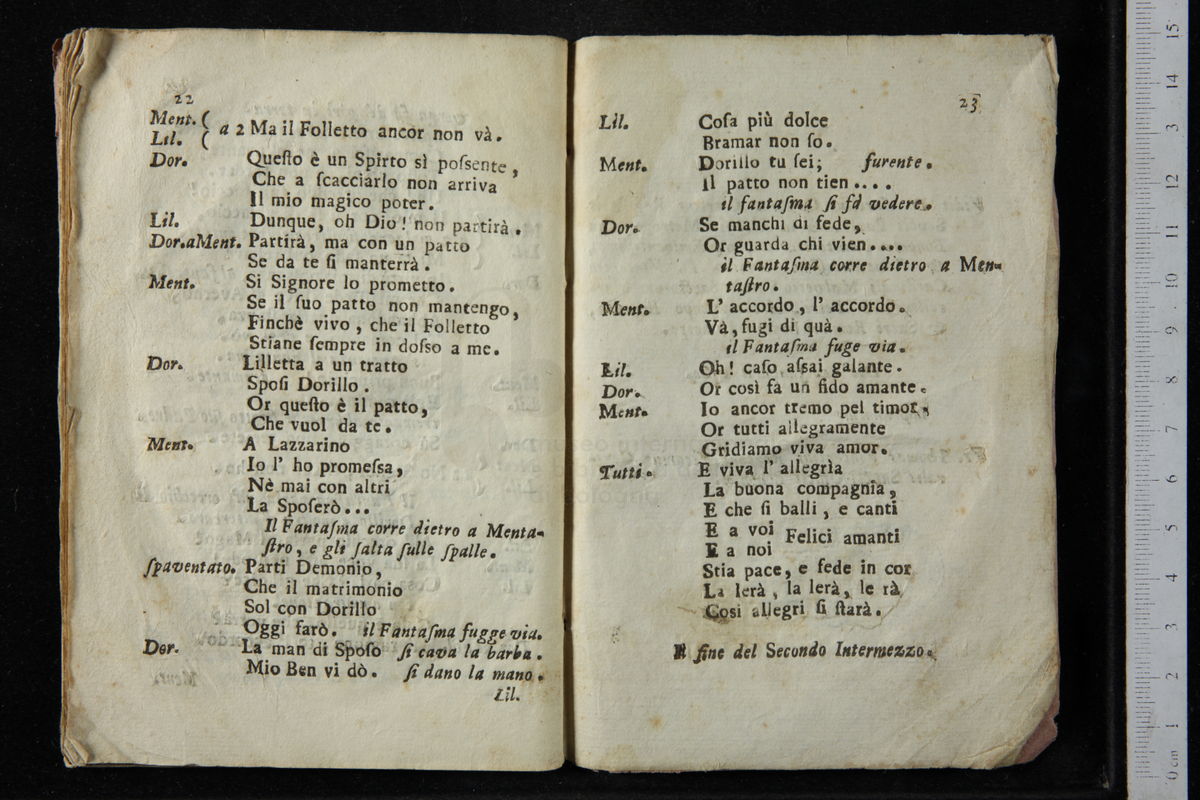 22
Ment. (
Lil. ( a 2 Ma il Folletto ancor non và.
Dor. Queſto è un Spirto sì poſsente,
Che a ſcacciarlo non arriva
Il mio magico poter.
Lil. Dunque, oh Dio! non partirà.
Dor. a Ment. Partirà, ma con un patto
Se da te ſi manterrà.
Ment. Si Signore lo prometto.
Se il ſuo patto non mantengo,
Finchè vivo, che il Folletto
Stiane ſempre in doſso a me.
Dor. Lilletta a un tratto
Spoſi Dorillo.
Or queſto è il patto,
Che vuol da te.
Ment. A Lazzarino
Io l' ho promeſsa,
Nè mai con altri
La Spoſerò...
Il Fantaſma corre dietro a Menta-
ſtro, e gli ſalta ſulle ſpalle.
ſpaventato. Parti Demonio,
Che il matrimonio
Sol con Dorillo
Oggi farò. il Fantaſma fugge via.
Dor. La man di Spoſo ſi cava la barba.
Mio Ben vi dò. ſi dano la mano.
Lil.
23
Lil. Coſa più dolce
Bramar non ſo.
Ment. Dorillo tu ſei; furente.
Il patto non tien....
il fantaſma ſi fà vedere.
Dor. Se manchi di fede,
Or guarda chi vien....
il Fantaſma corre dietro a Men-
taſtro.
Ment. L' accordo, l' accordo.
Và, fugi di quà.
il Fantaſma fuge via.
Lil. Oh! caſo aſsai galante.
Dor. Or così fa un fido amante.
Ment. Io ancor tremo pel timor,
Or tutti allegramente
Gridiamo viva amor.
Tutti. E viva l' allegrìa
La buona compagnìa,
E che ſi balli, e canti
E a voi Felici amanti
E a noi
Stia pace, e fede in cor
La lerà, la lerà, le rà
Così allegri ſi ſtarà.
Il fine del Secondo Intermezzo.
0 cm 1 2 3 4 5 6 7 8 9 10 11 12 13 14 15